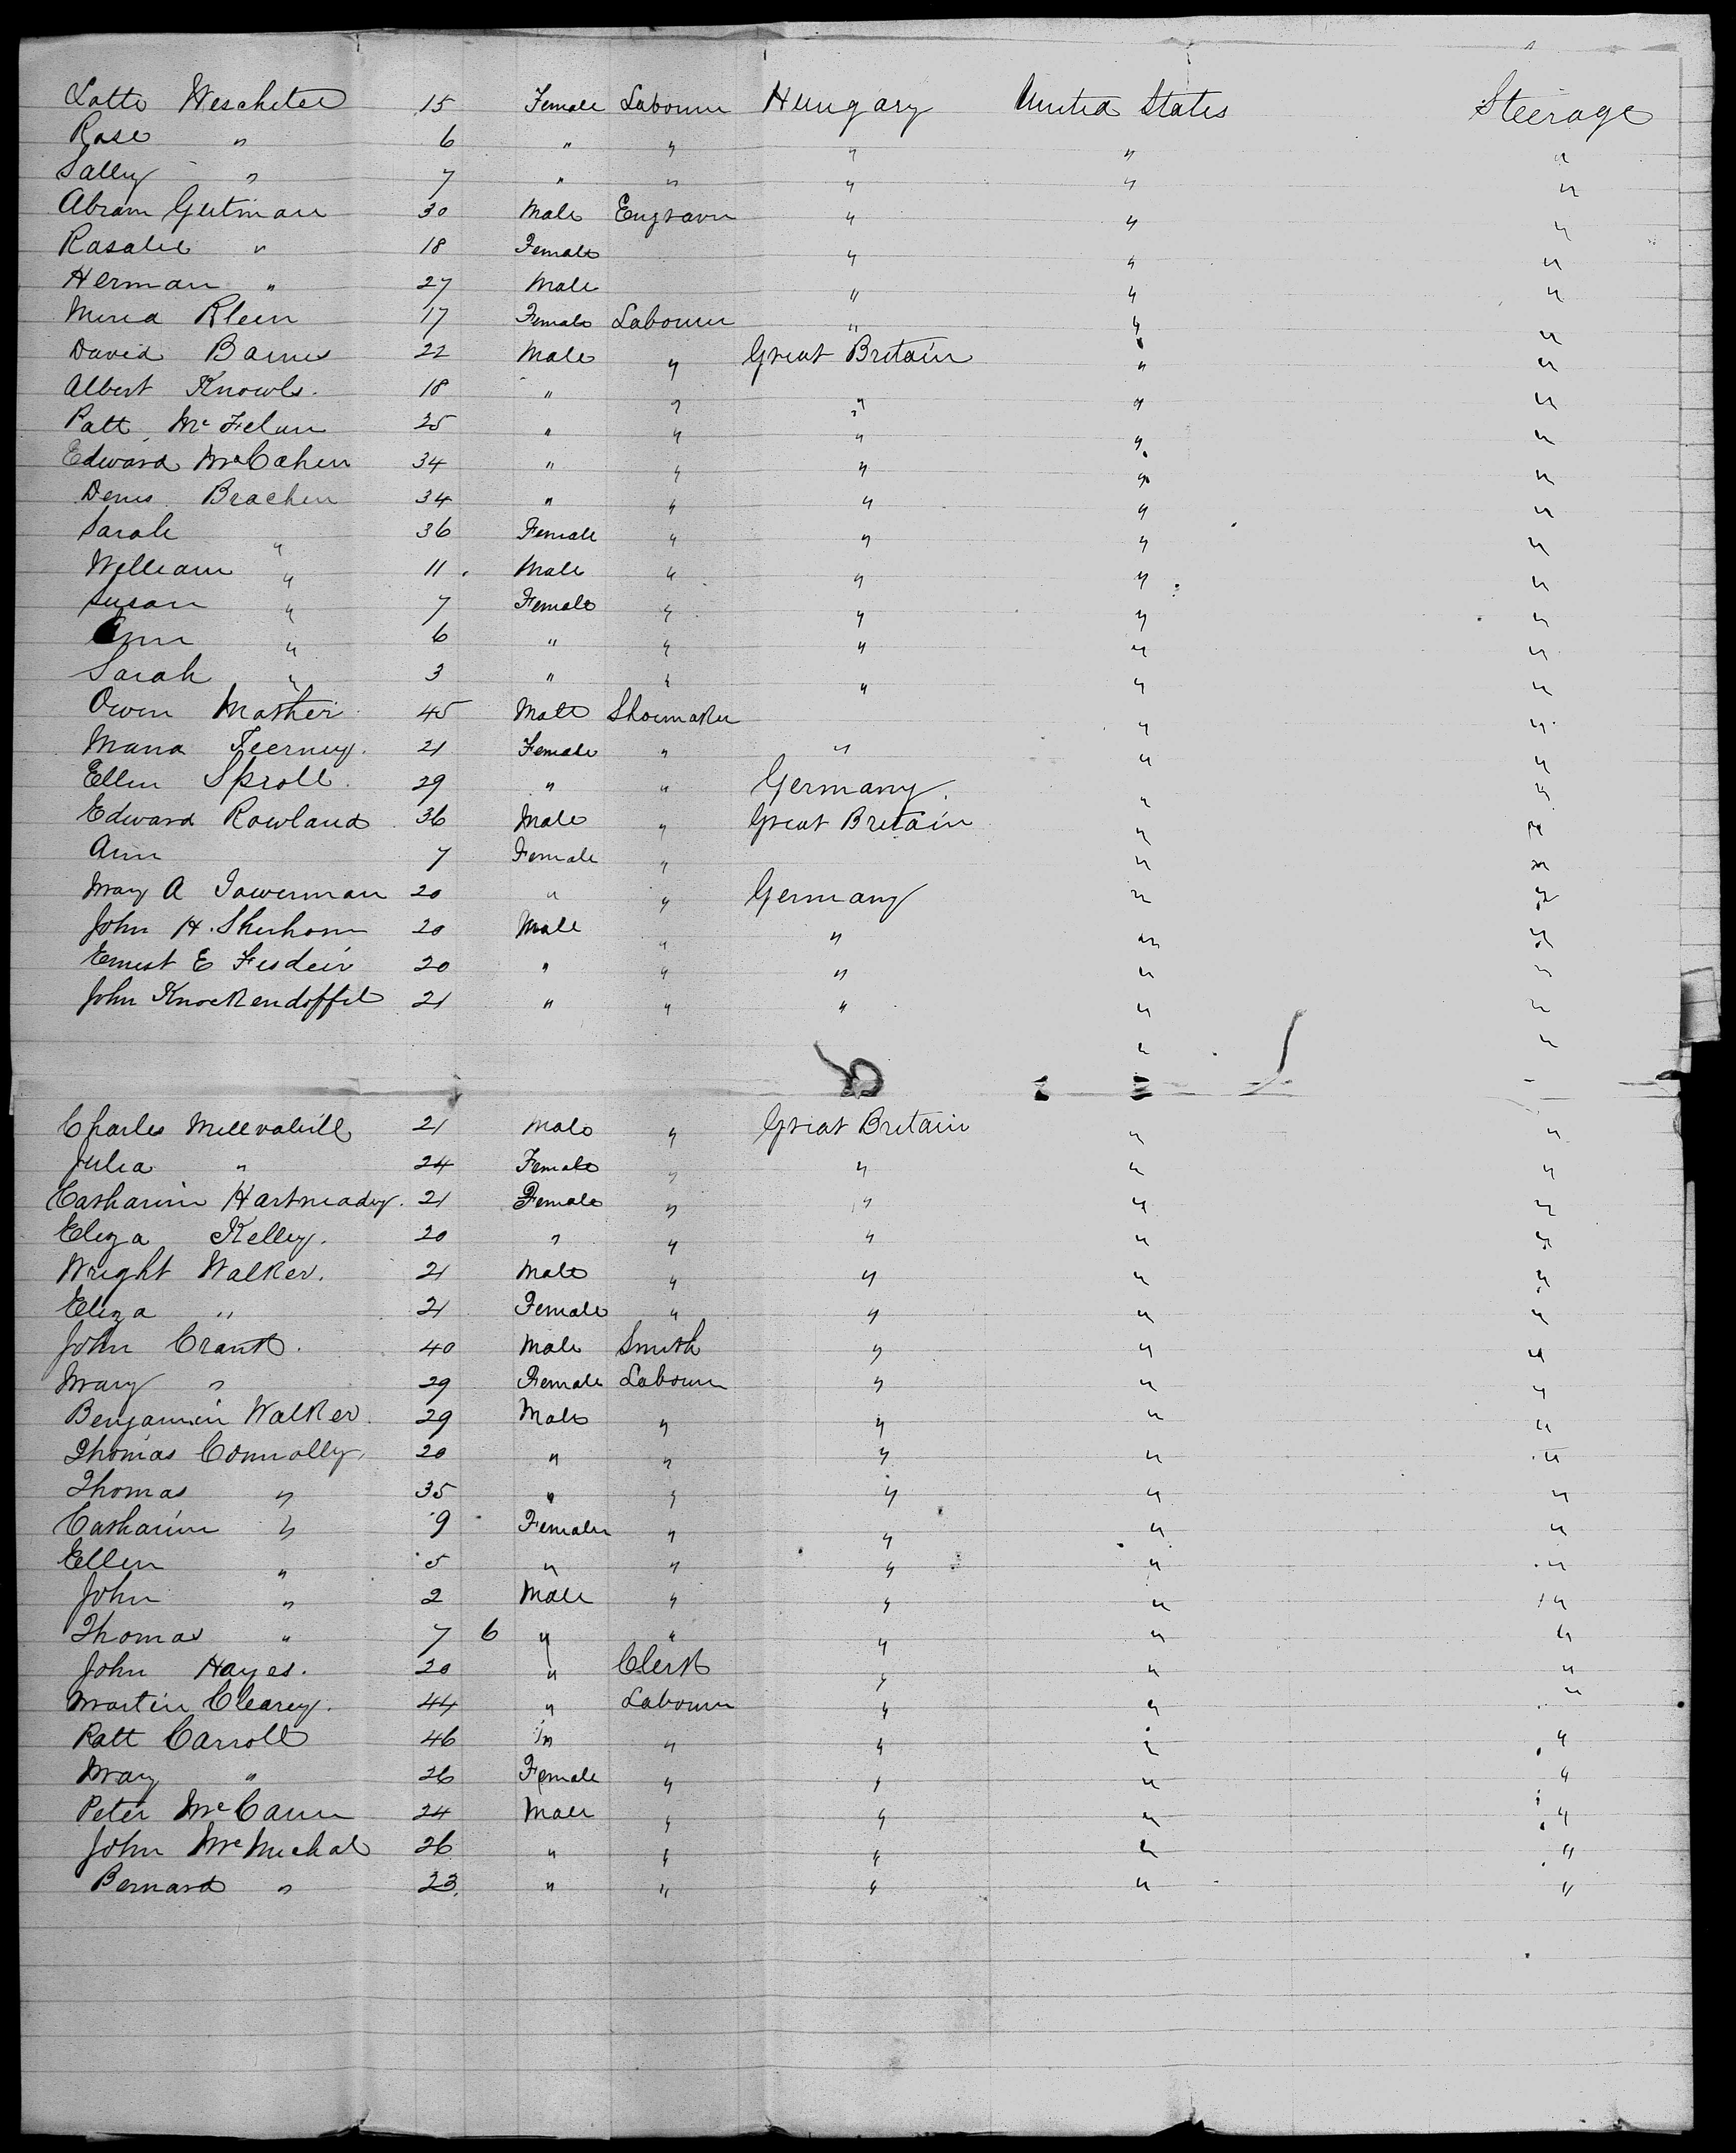 Lotte Wescheter 15 Female Labourer Hungary United States Steerage
Rose " 6 " " " " "
Sally " 7 " " " " "
Abram Gutman 30 Male Engraver " " "
Rasalie " 18 Female " " "
Herman " 27 Male " " "
Klein 17 Female Labourer " " "
David Barnes 22 Male " Great Britain " "
Albert Knowls. 18 " " " " "
Patt Mc Felun 25 " " " " "
Edward McCahen 34 " " " " "
Denis Brachen 34 " " " " "
Sarah " 36 Female " " " "
William " 11 Male " " " "
Susan " 7 Female " " " "
Ann " 6 " " " " "
Sarah " 3 " " " " "
Owen Mosher 45 Male Shoemaker " "
Maria Teerney. 21 Female " " " "
Ellen Sproll. 29 " " Germany. " "
Edward Rowland 36 Male " Great Britain " "
Ann 7 Female " " "
Mary A Towerman 20 " " Germany " "
John H. 20 Male " " " "
Ernest E Fesdeir 20 " " " " "
John Knockendoffel 21 " " " " "
" "
Charles 21 Male " Great Britain " "
Julia " 24 Female " " " "
Catharine Hartneady. 21 Female " " " "
Eliza Kelley. 20 " " " " "
Wright Walker. 21 Male " " " "
Eliza " 21 Female " " " "
John Crank. 40 Male Smith " " "
Mary " 29 Female Labourer " " "
Benjamin Walker. 29 Male " " " "
Thomas Connolly, 20 " " " " "
Thomas " 35 " " " " "
Catharine " 9 Female " " " "
Ellen " 5 " " " " "
John " 2 Male " " " "
Thomas " 7 6 " " " " "
John Hayes. 20 " Clerk " " "
Martin Clearey. 44 " Labourer " " "
Patt Carroll 46 " " " " "
Mary " 26 Female " " " "
Peter McCann 24 Male " " " "
John McMichal 26 " " " " "
Bernard " 23. " " " " "